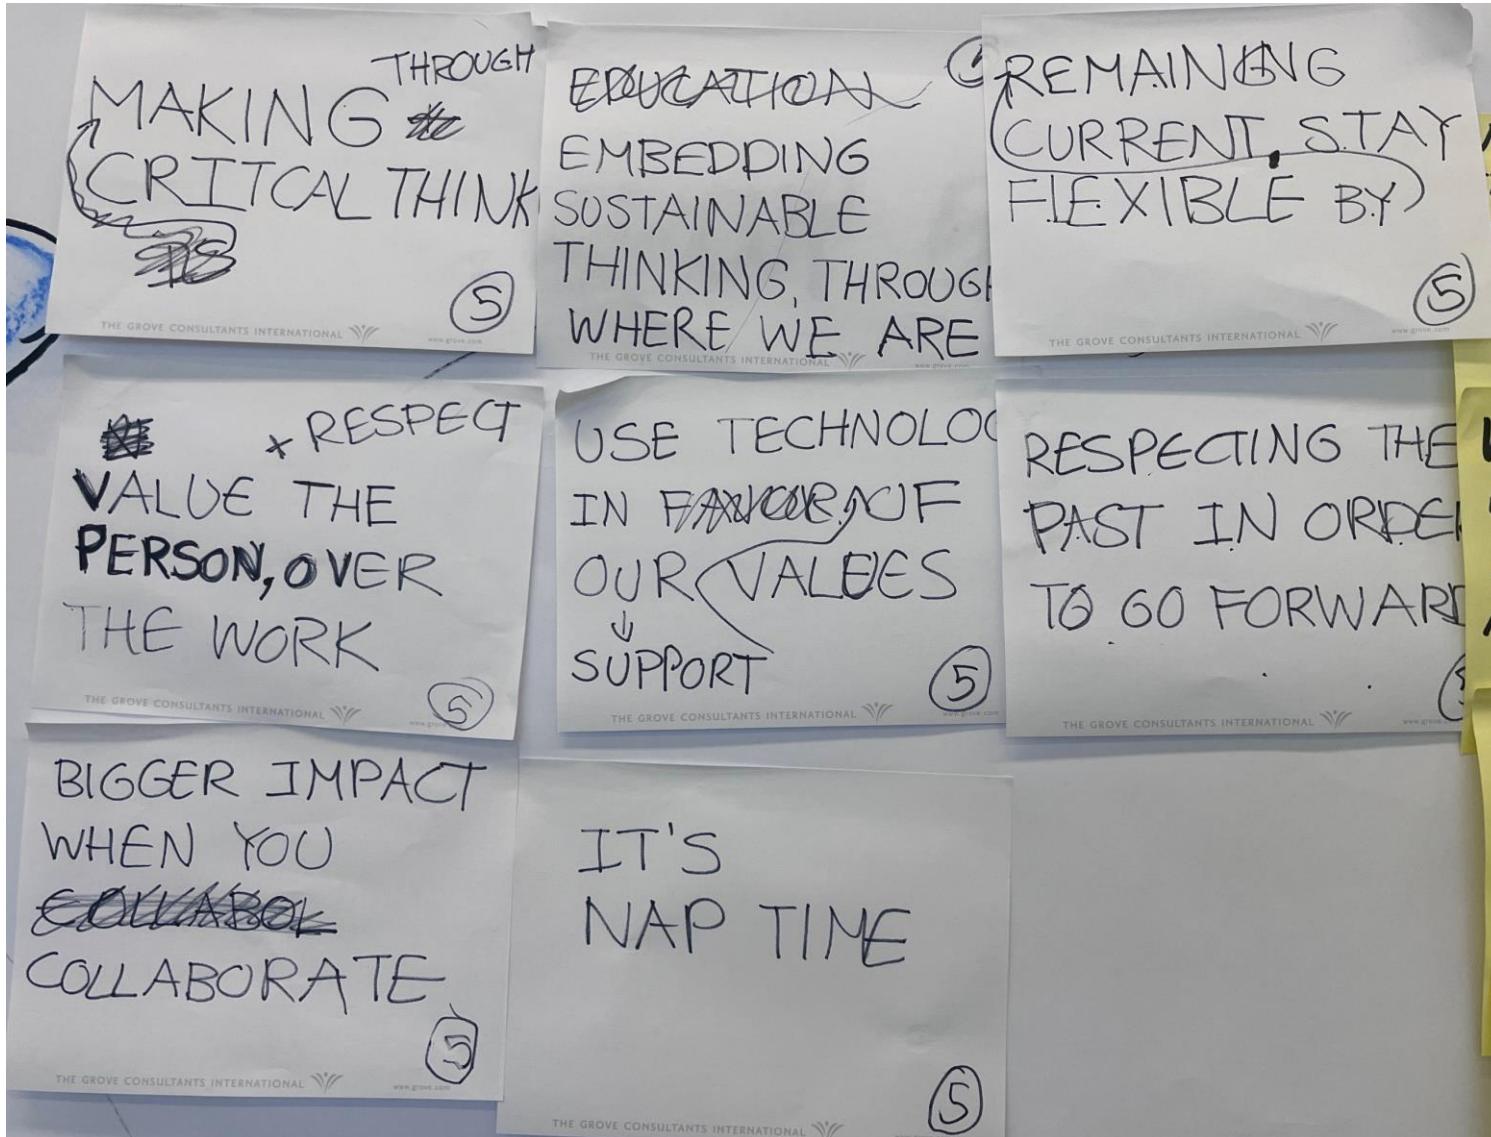 THROUGH
MAKING
CRITCAL THINK
5
THE GROVE CONSULTANTS INTERNATIONAL
www.grove.com
EDUCATION
EMBEDDING
SUSTAINABLE
THINKING, THROUGH
WHERE WE ARE
THE GROVE CONSULTANTS INTERNATIONAL
www.grove.com
REMAINING
CURRENT, STAY
FLEXIBLE BY
5
THE GROVE CONSULTANTS INTERNATIONAL
www.grove.com
+ RESPECT
VALUE THE
PERSON, OVER
THE WORK
5
THE GROVE CONSULTANTS INTERNATIONAL
USE TECHNOLOG
IN FAVOUR OF
OUR VALUES
SUPPORT
5
THE GROVE CONSULTANTS INTERNATIONAL
www.grove.com
RESPECTING THE
PAST IN ORDER
TO GO FORWARD
5
THE GROVE CONSULTANTS INTERNATIONAL
BIGGER IMPACT
WHEN YOU
COLLABOL
COLLABORATE
5
THE GROVE CONSULTANTS INTERNATIONAL
www.grove.com
IT'S
NAP TIME
5
THE GROVE CONSULTANTS INTERNATIONAL